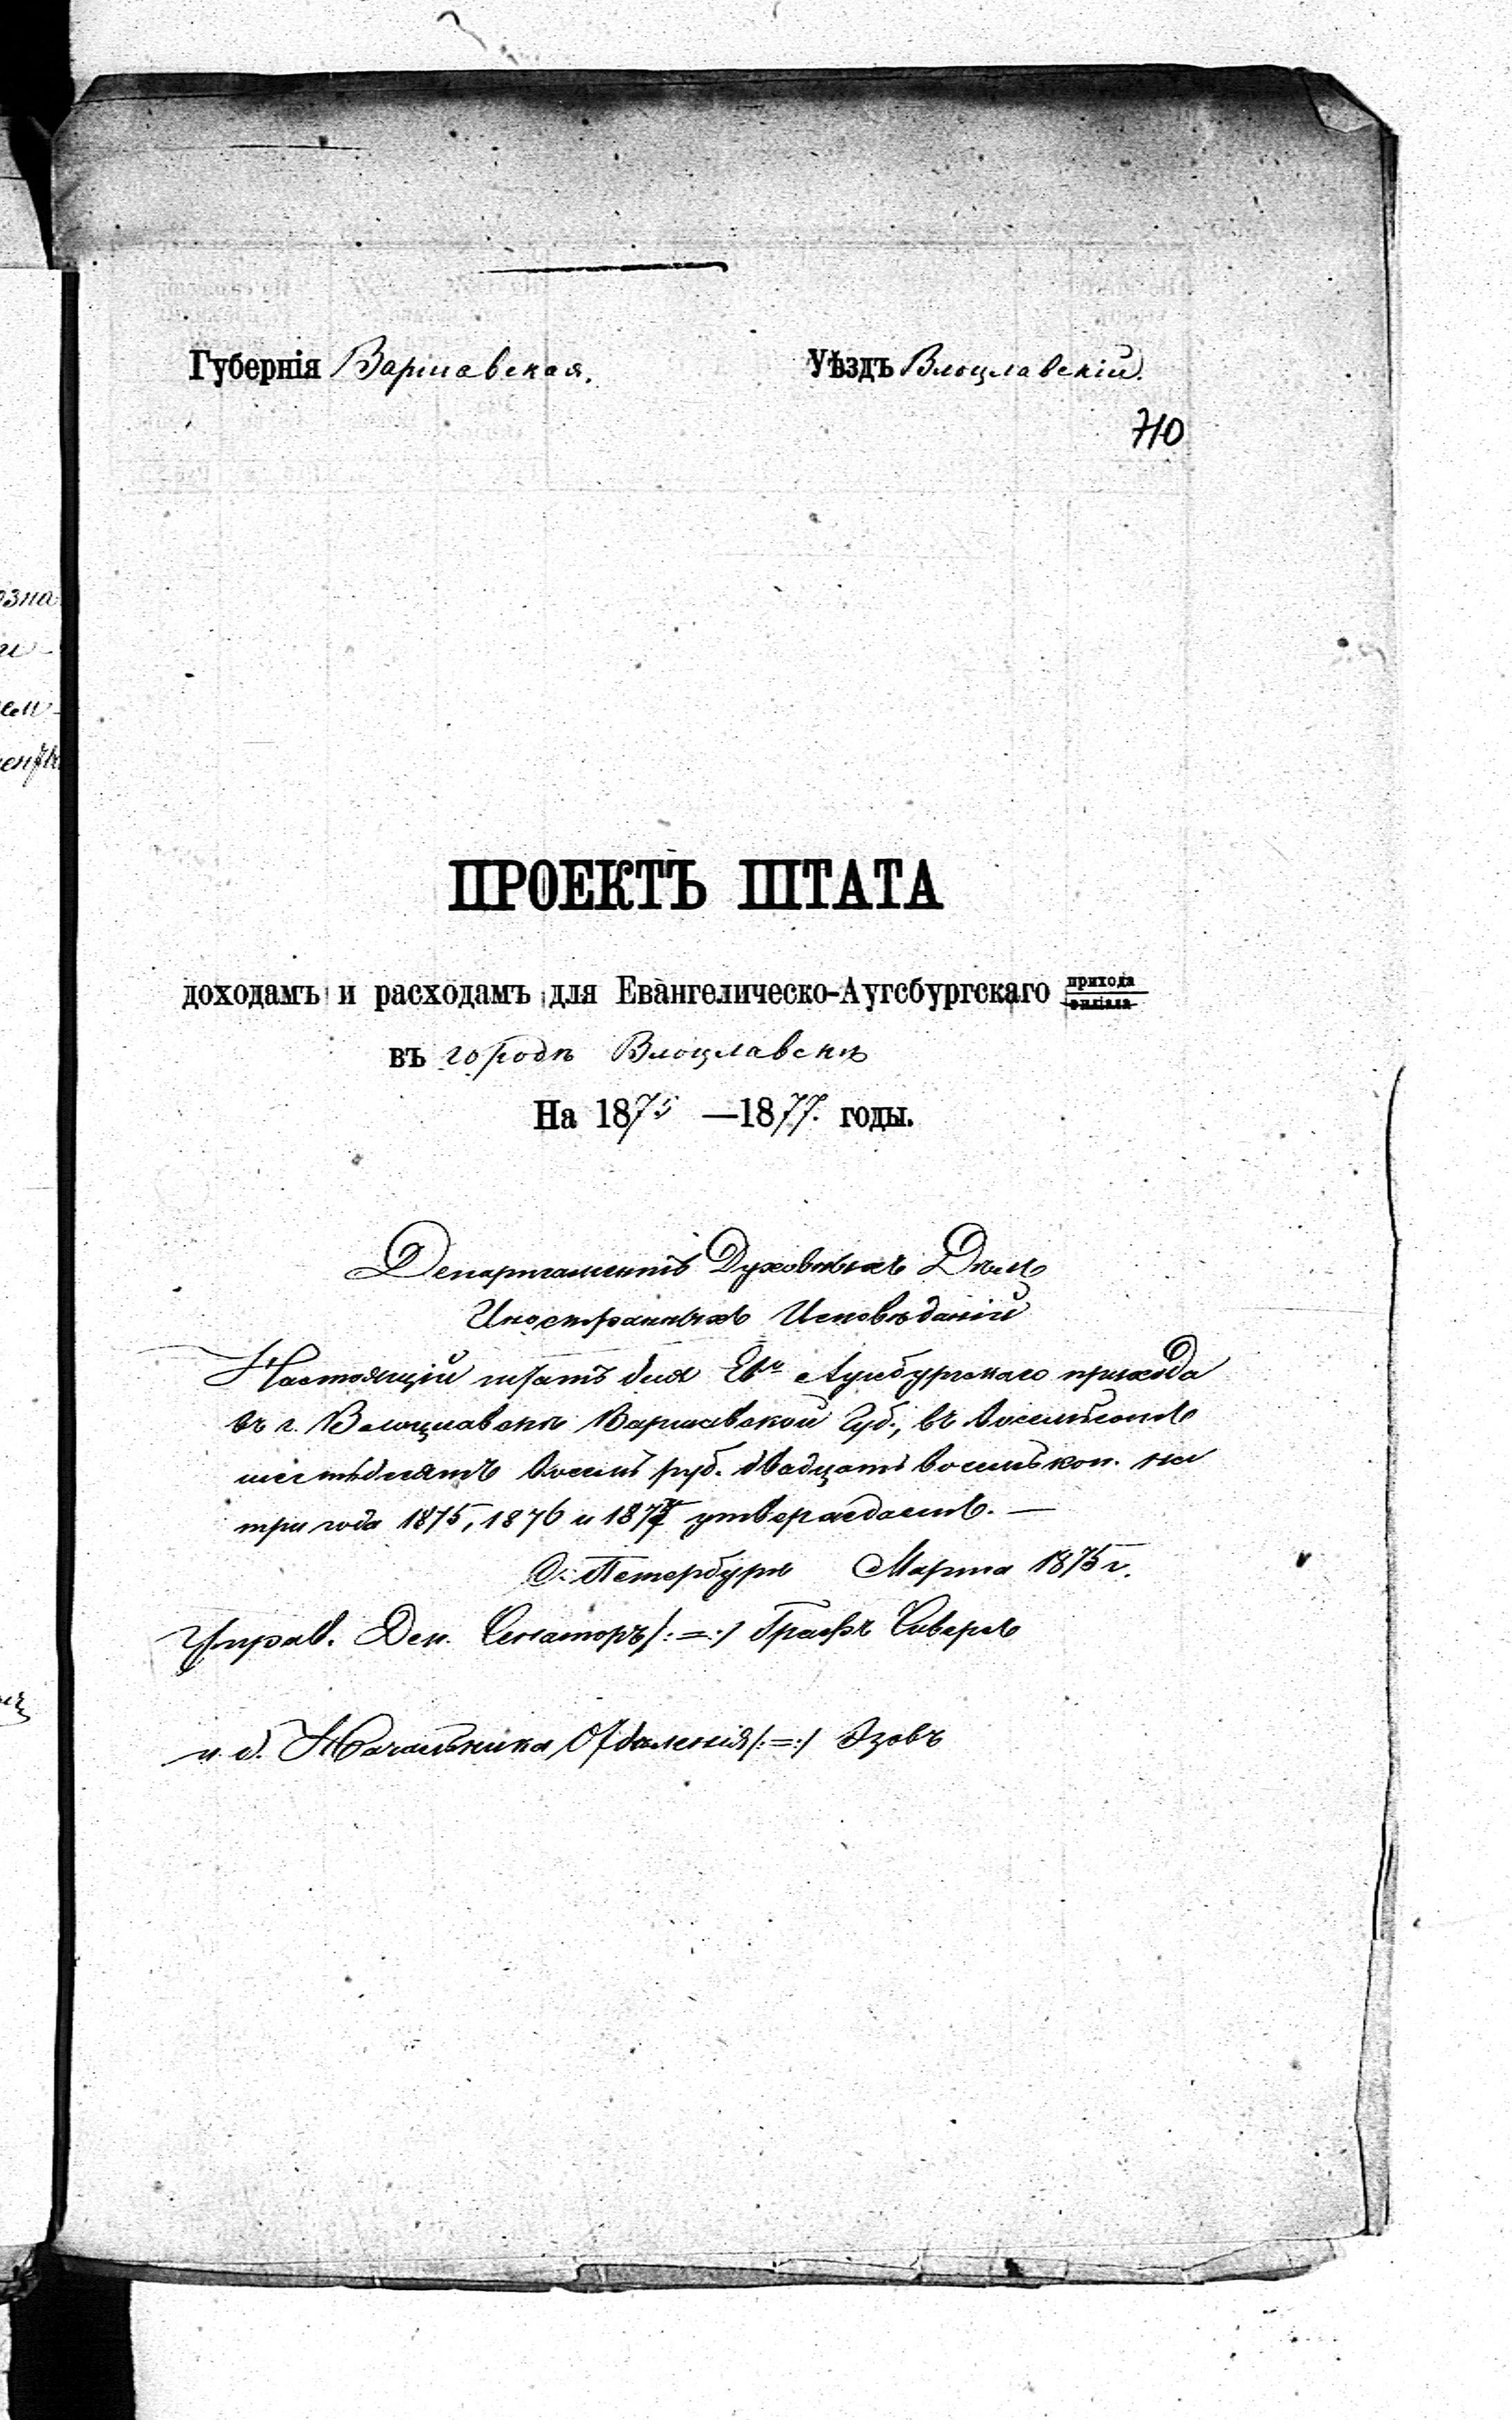 Губернія Варшавская.
Уѣздъ Влоцлавскій.
710
ПРОЕКТЪ ШТАТА
доходамъ и расходамъ для Евангелическо-Аугсбургскаго прихода
филіала
въ городѣ Влоцлавскѣ
На 1875 —1877. годы.
Департаментъ Духовныхъ Дѣлъ
Иностранныхъ Исповѣданій
Настоящій штатъ для Ев. Аугсбургскаго прихода
въ г. Влоцлавскѣ Варшавской Губ., въ восемьсотъ
шестьдесятъ восемь руб. двадцать восемь коп. на
три года 1875, 1876 и 1877 утверждаетъ. —
С. Петербургъ Марта 1875 г.
Управ. Деп. Сенаторъ /:=:/ Графъ Сиверсъ
и. д. Начальника Отдѣленія /:=:/ Эзовъ